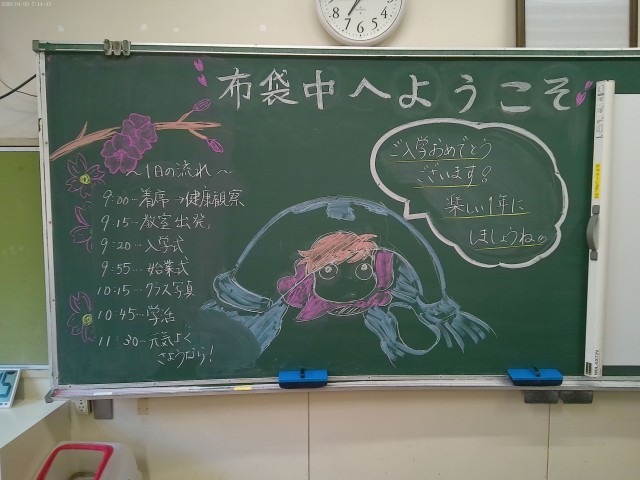 布袋中へようこそ
～1日の流れ～
9:00…着席→健康観察
9:15…教室出発
9:20…入学式
9:55…始業式
10:15…クラス写真
10:45…学活
11:30…元気よく
さようなら!
ご入学おめでとう
ございます!
楽しい1年に
しましょうね。